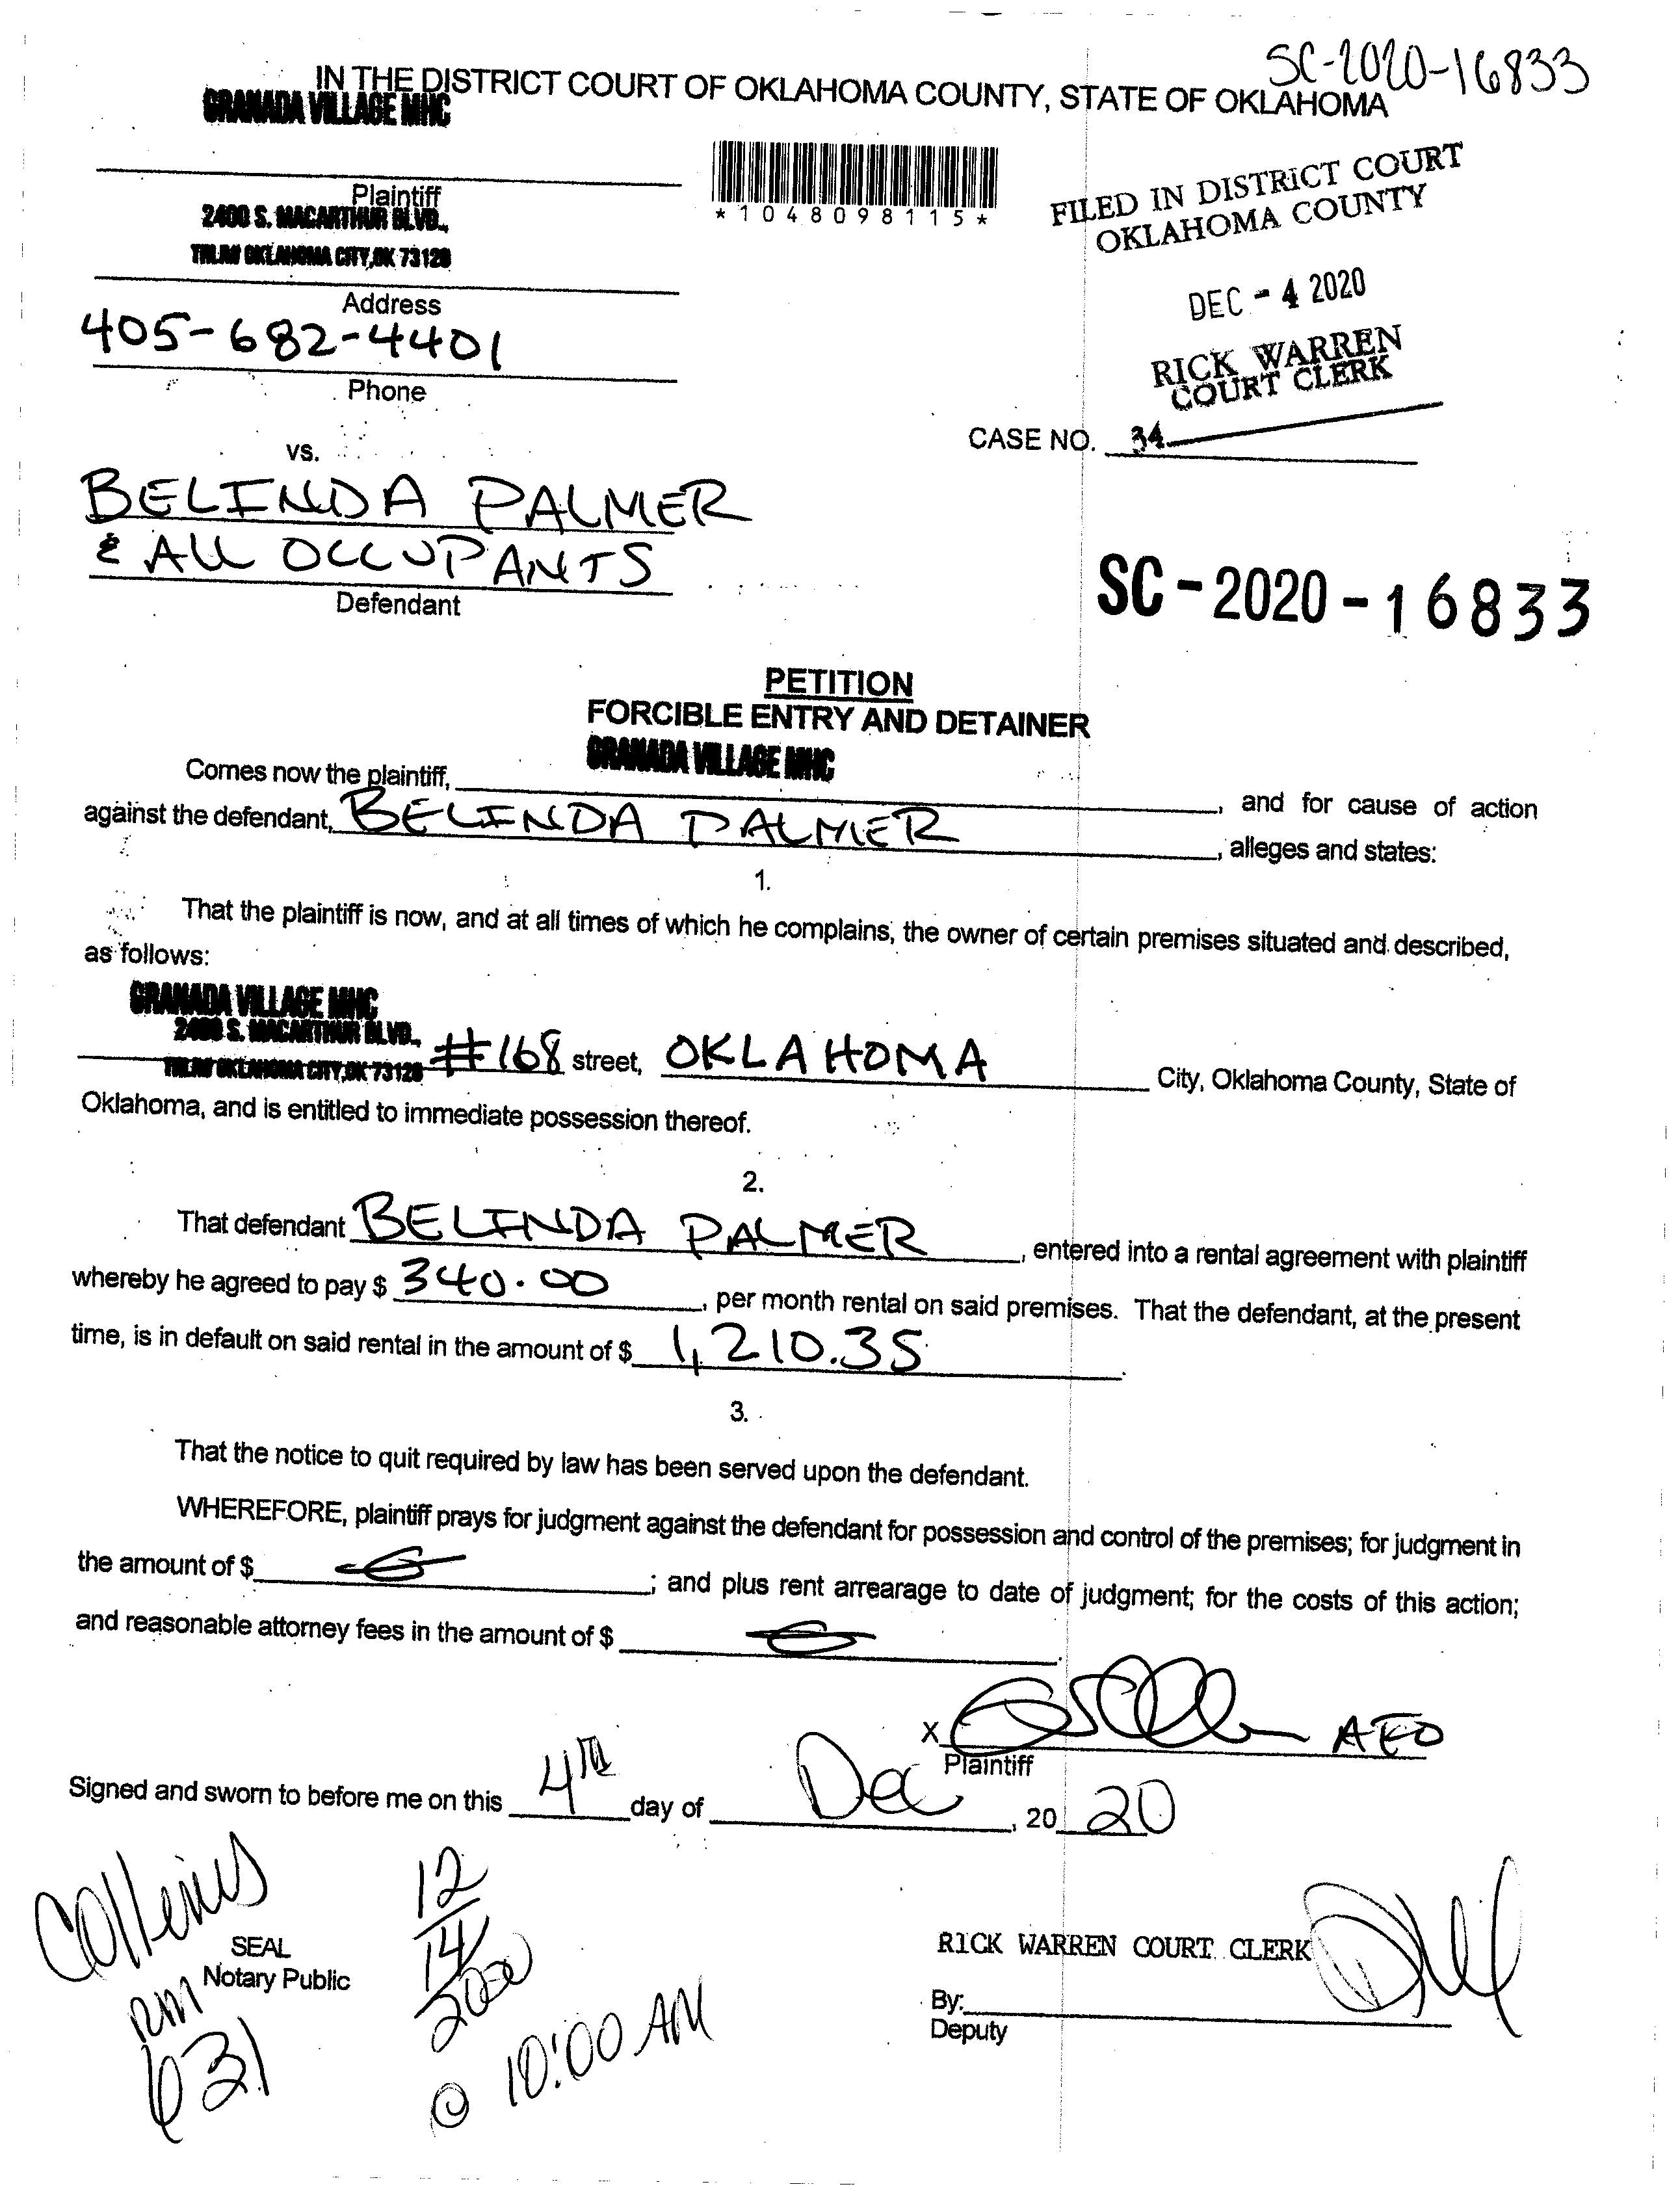 SC-2020-16833
IN THE DISTRICT COURT OF OKLAHOMA COUNTY, STATE OF OKLAHOMA
GRANADA VILLAGE MHC
Plaintiff
2400 S. MACARTHUR BLVD.,
OKLAHOMA CITY, OK 73128
Address
405-682-4401
Phone
*1048098115*
FILED IN DISTRICT COURT
OKLAHOMA COUNTY
DEC - 4 2020
RICK WARREN
COURT CLERK
CASE NO. 34
vs.
BELINDA PALMER
& ALL OCCUPANTS
Defendant
SC-2020-16833
PETITION
FORCIBLE ENTRY AND DETAINER
Comes now the plaintiff, GRANADA VILLAGE MHC, and for cause of action
against the defendant, BELINDA PALMER, alleges and states:
1.
That the plaintiff is now, and at all times of which he complains, the owner of certain premises situated and described,
as follows:
GRANADA VILLAGE MHC
2400 S. MACARTHUR BLVD.,
OKLAHOMA CITY, OK 73128 #168 street, OKLAHOMA City, Oklahoma County, State of
Oklahoma, and is entitled to immediate possession thereof.
2.
That defendant BELINDA PALMER, entered into a rental agreement with plaintiff
whereby he agreed to pay $ 340.00, per month rental on said premises. That the defendant, at the present
time, is in default on said rental in the amount of $ 1,210.35.
3.
That the notice to quit required by law has been served upon the defendant.
WHEREFORE, plaintiff prays for judgment against the defendant for possession and control of the premises; for judgment in
the amount of $ ; and plus rent arrearage to date of judgment; for the costs of this action;
and reasonable attorney fees in the amount of $ .
X AFO
Plaintiff
Signed and sworn to before me on this 4th day of Dec, 20 20
Collenis
rm
631
SEAL
Notary Public
12/14/2020
@ 10:00 AM
RICK WARREN COURT CLERK
By:
Deputy